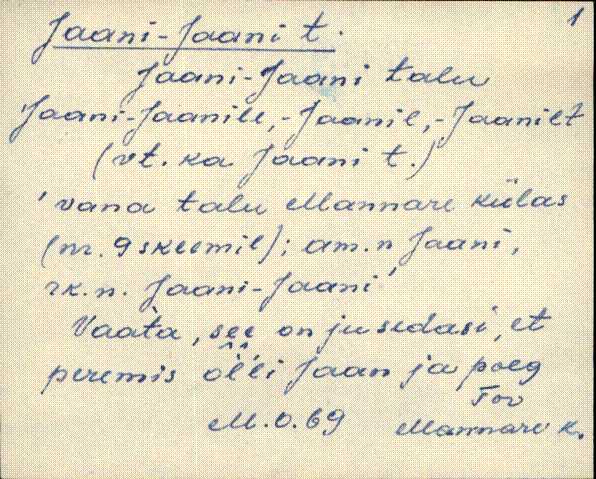 1
Jaani-Jaani t.
Jaani-Jaani talu
Jaani-Jaanile, -Jaanil, -Jaanilt
(vt. ka Jaani t.)
'vana talu Mannare külas
(nr. 9 skeemil); am.n Jaani,
rk.n. Jaani-Jaani'
Vaata, see on ju sedasi, et
peremis ol̀li Jaan ja poeg
Tov
M.O. 69 Mannare k.